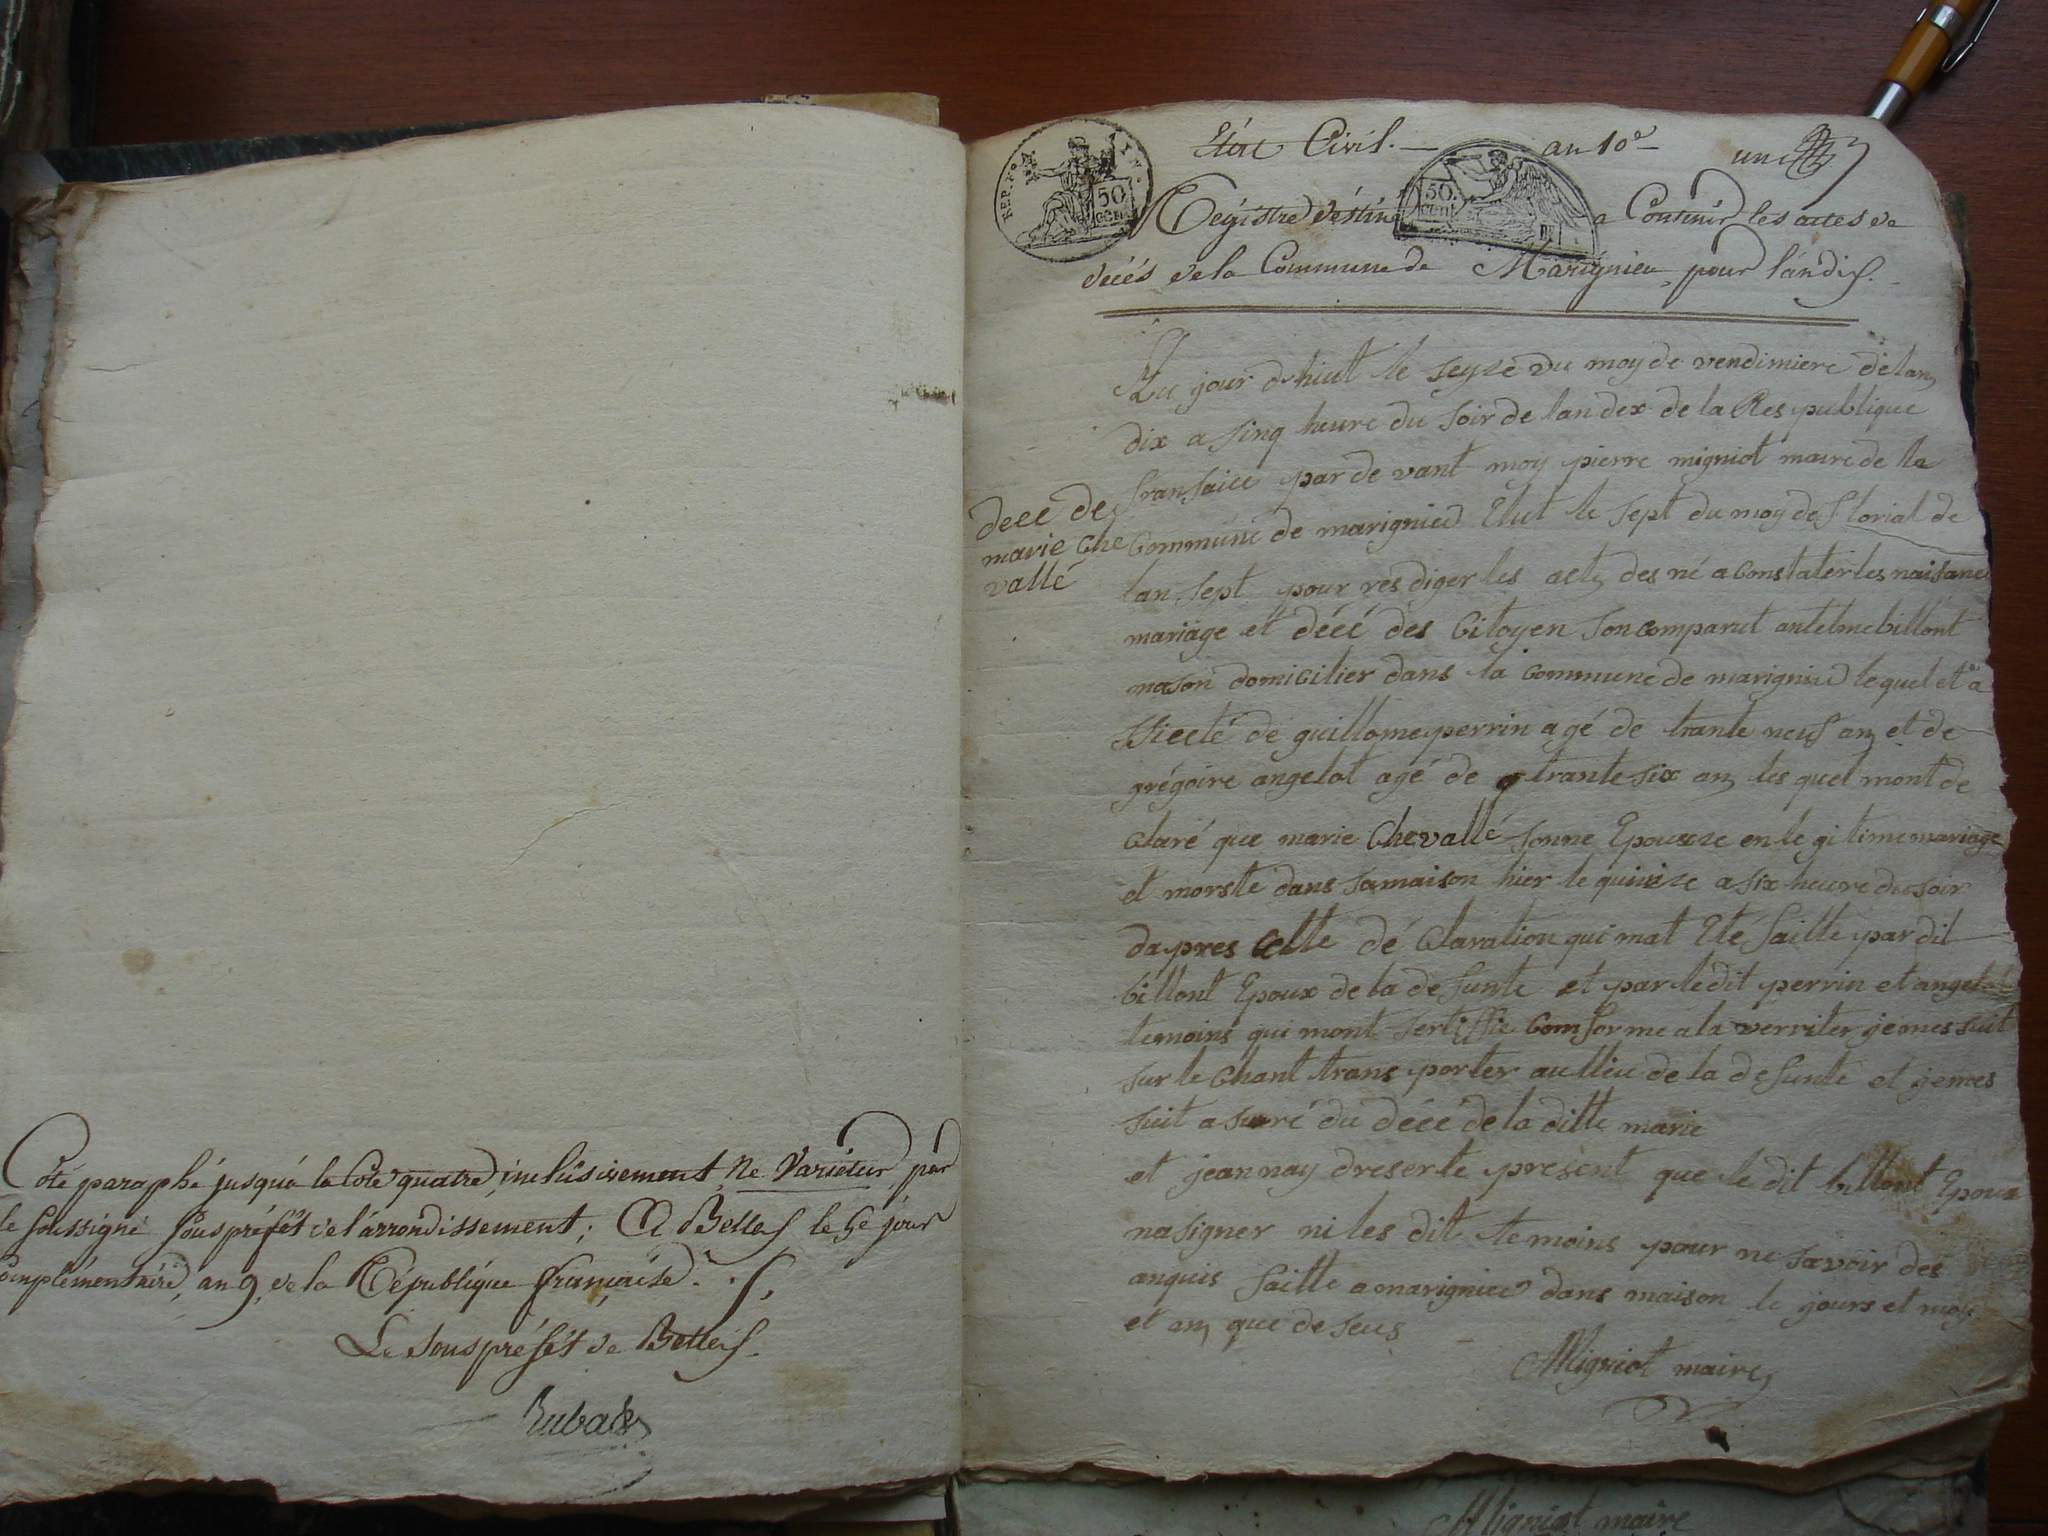 Coté paraphé jusqu'à la Cote quatre, inclusivement, Ne Varietur, par
le soussigné souspréfét de l'arrondissement; A Belley le 5e jour
Complémentaire, an 9, de la République française.
Le souspréfét de Belley.
REP. FRA.
50
CEN.
Etat Civil. — an 10e — un
50
CEN.
Registre destiné a Contenir les actes de
décés de la Commune de Marignieu, pour l'an dix.
decé de
marie che
vallé
Au jour dhiut le seyze du moy de vendimiere de lan
dix a sinq heure du soir de lan dex de la Respublique
fransaice par de vant moy pierre migniot maire de la
Commune de marignieu Elut le sept du moy de florial de
lan sept pour res diger les acte des né a Constater les naisance
mariage et décé des Citoyen son comparut antelme billont
mason domicilier dans la commune de marignieu le quel et a
ssiecté de guillome perrin agé de trante neuf an et de
grégoire angelot agé de trante six an les quel mont de
Claré que marie Chevallé sonne Epousze en le gi time mariage
et morste dans sa maison hier le quinze a six heure du soir
da pres Cette dé Claration qui mat Eté faitte par dit
billont Epoux de la de funte et par le dit perrin et angelot
temoins qui mont sertiffie Comforme a la verriter je mes suit
sur le Chant trans porter au llieu de la de funte et je mes
suit a surré du décé de la ditte marie
et jean nay dreser le present que le dit billont Epoux
na signer ni les dit temoins pour ne savoir des
anquis faitte a marignieu dans maison le jours et moy
et an que de seus
Migniot maire,
Migniot maire